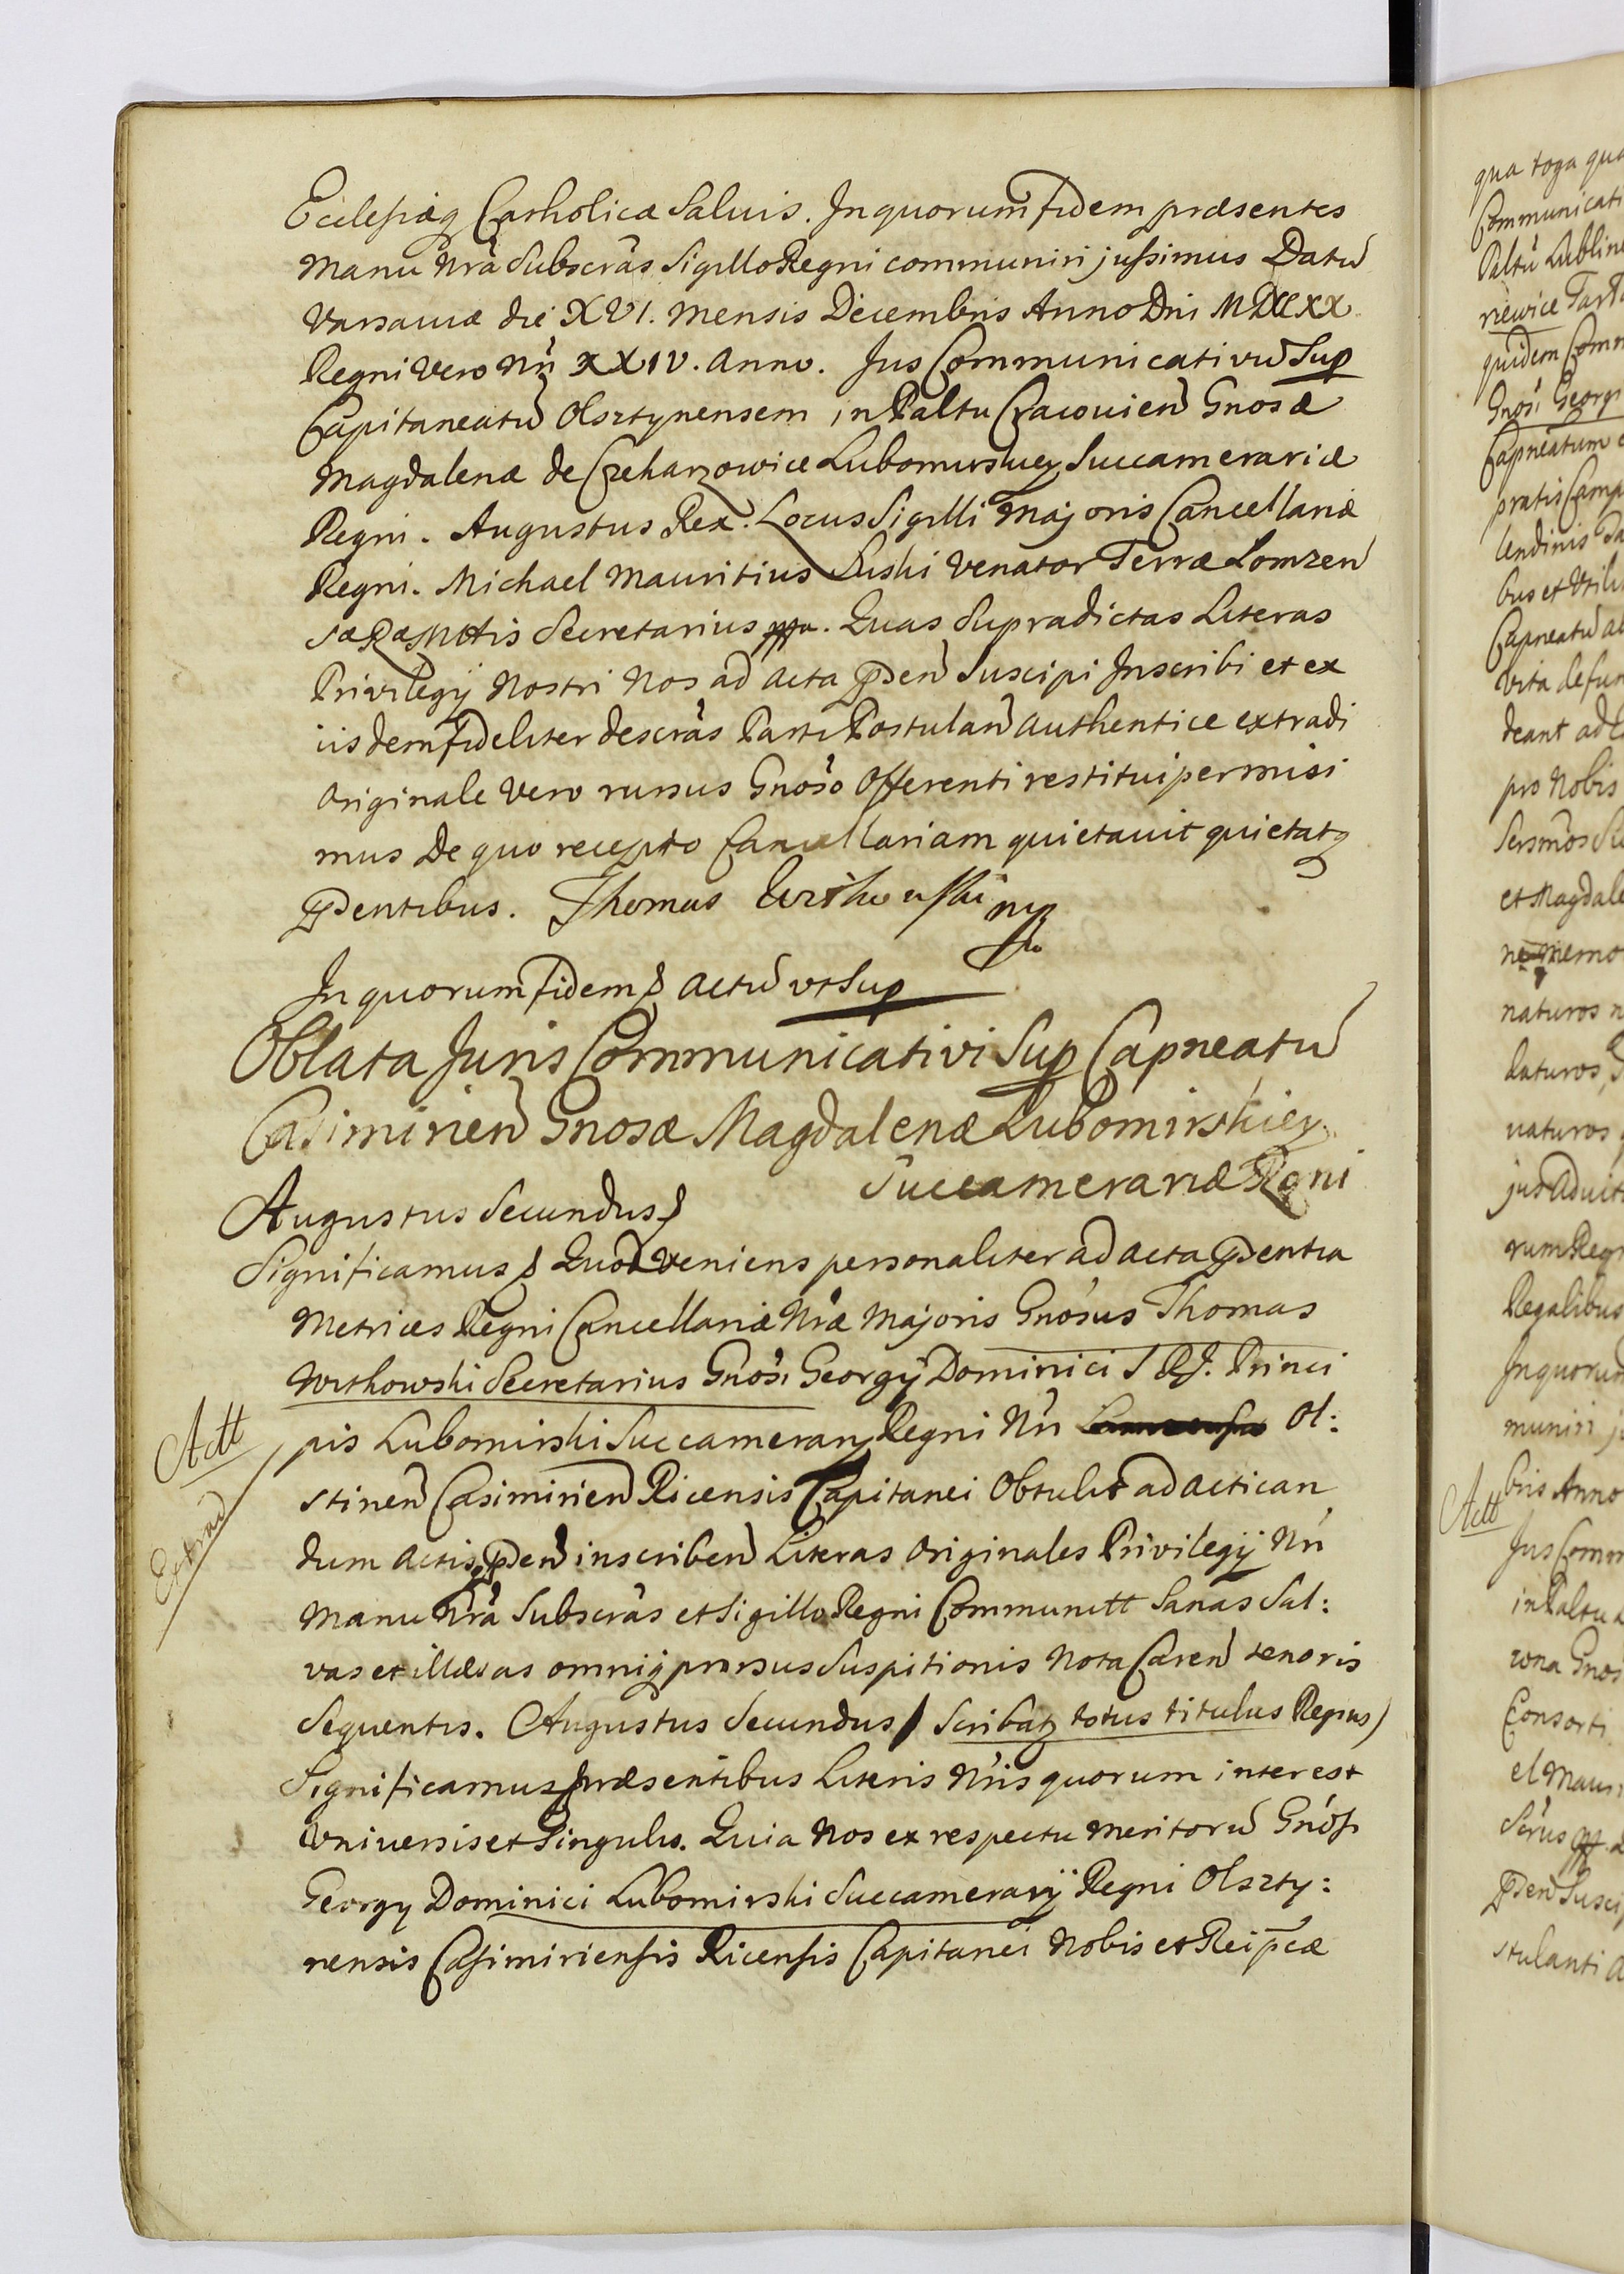 Ecclesiæq Catholicæ Saluis. In quorum fidem præsentes
Manu Nrâ Subscrâs Sigillo Regni communiri jussimus Datu
Varsaviæ die XVI. Mensis Decembris Anno Dni MDCCXX
Regni Vero Nri XXIV. Anno. Jus Communicativu Sup
Capitaneatu Olsztynensem in Paltu Cracovien Gnosæ
Magdalenæ de Lubomirskiey Succamerariæ
Regni. Augustus Rex. Locus Sigilli Majoris Cancellariæ
Regni. Michael Mauritius Suski Venator Terræ Lomzen
SæRæMttis Secretarius mpp. Quas Supradictas Literas
Privilegij Nostri Nos ad Acta pden Suscipi Inscribi et ex
iisdem fideliter descrâs Parti Postulan authentice extradi
Originale Vero rursus Gnôso Offerenti restitui permisi
mus De quo recepto Cancellariam quietavit quietatq
pdentibus. Thomas Witkowski mp
In quorum fidem & Actu vt Sup
Oblata Juris Communicativi Sup Capneatu
Casimirien Gnosæ Magdalenæ Lubomirskiey
Succamerariæ Rgni
Augustus Secundus &
Significamus & Quod Veniens personaliter ad acta pdentia
Metrices Regni Cancellariæ Nræ Majoris Gnôsus Thomas
Witkowski Secretarius Gnôsi Georgij Dominici S R J. Princi
pis Lubomirski Succamerarij Regni Nri Ol:
stinen Casimirien Ricensis Capitanei Obtulit ad actican
dum Actisq pden inscriben Literas Originales Privilegij Nri
Manu Nrâ Subscrâs et Sigillo Regni Communitt Sanas Sal:
vas et illæsas omniq prorsus Suspitionis Nota Caren tenoris
Sequentis. Augustus Secundus / Scribatz totus titulus Regius)
Significamus præsentibus Literis Nris quorum interest
Vniversis et Singulis. Quia Nos ex respectu meritoru Gnôsi
Georgy Dominici Lubomirski Succamerarij Regni Olszty:
nensis Casimiriensis Ricensis Capitanei Nobis et Reipcæ
Actt
Extrad
qua toga qua
Communicati
Paltu Lubline
quidem Comm
Gnôsi Georgi
Capneatum
pratis Camp
bus et Vtili
Capneatu
vita defun
deant ad
pro Nobis
et Magdale
naturos n
daturos
naturos
rum Regn
Regalibus
In quorum
muniri j
bris Anno
Actt
Jus Comm
in Paltu
Consorti
el Mauri
pden Susci
stulanti a